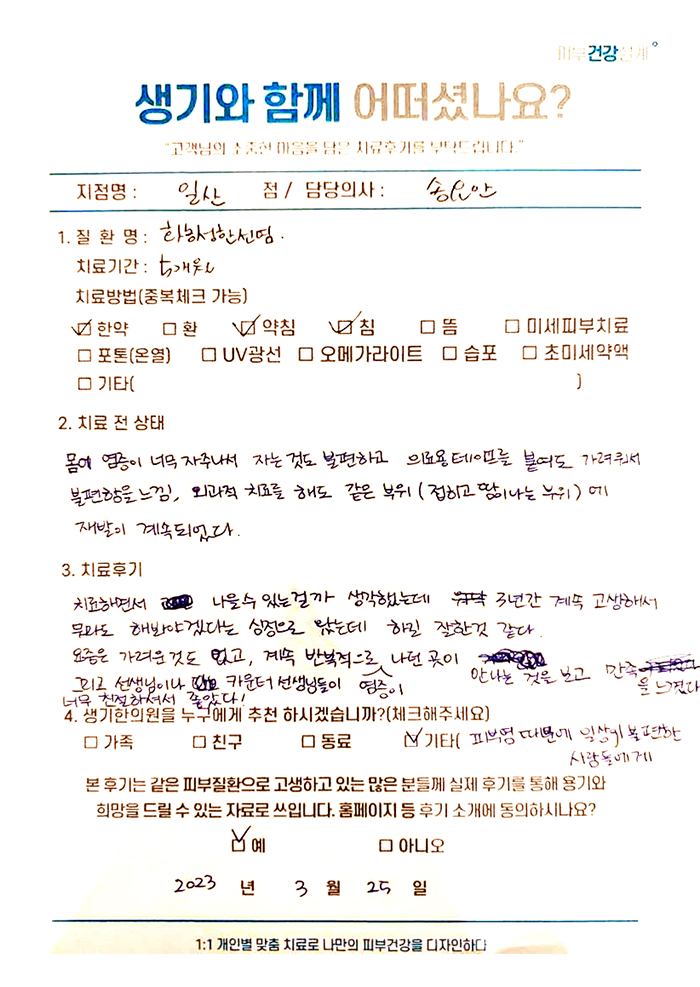 피부건강설계
생기와 함께 어떠셨나요?
"고객님의 소중한 마음을 담은 치료후기를 부탁드립니다."
지점명 : 일산 점 / 담당의사 :
1. 질 환 명 : 화농성한선염.
치료기간 : 5개월
치료방법(중복체크 가능)
☑ 한약 □ 환 ☑ 약침 ☑ 침 □ 뜸 □ 미세피부치료
□ 포톤(온열) □ UV광선 □ 오메가라이트 □ 습포 □ 초미세약액
□ 기타( )
2. 치료 전 상태
몸에 염증이 너무 자주나서 자는것도 불편하고 의료용테이프를 붙여도 가려워서
불편함을 느낌, 외과적 치료를 해도 같은 부위 (접히고 땀이나는 부위) 에
재발이 계속되었다.
3. 치료후기
치료하면서 나을수 있는걸까 생각했는데 3년간 계속 고생해서
뭐라도 해봐야겠다는 심정으로 왔는데 하길 잘한것 같다.
요즘은 가려운것도 없고, 계속 반복적으로 나던 곳이
염증이 안나는 것을 보고 만족을 느꼈다
그리고 선생님이나 카운터 선생님들이
너무 친절하셔서 좋았다!
4. 생기한의원을 누구에게 추천 하시겠습니까?(체크해주세요)
□ 가족 □ 친구 □ 동료 ☑ 기타( 피부염 때문에 일상이 불편한
사람들에게
본 후기는 같은 피부질환으로 고생하고 있는 많은 분들께 실제 후기를 통해 용기와
희망을 드릴 수 있는 자료로 쓰입니다. 홈페이지 등 후기 소개에 동의하시나요?
☑ 예 □ 아니오
2023 년 3 월 25 일
1:1 개인별 맞춤 치료로 나만의 피부건강을 디자인하다